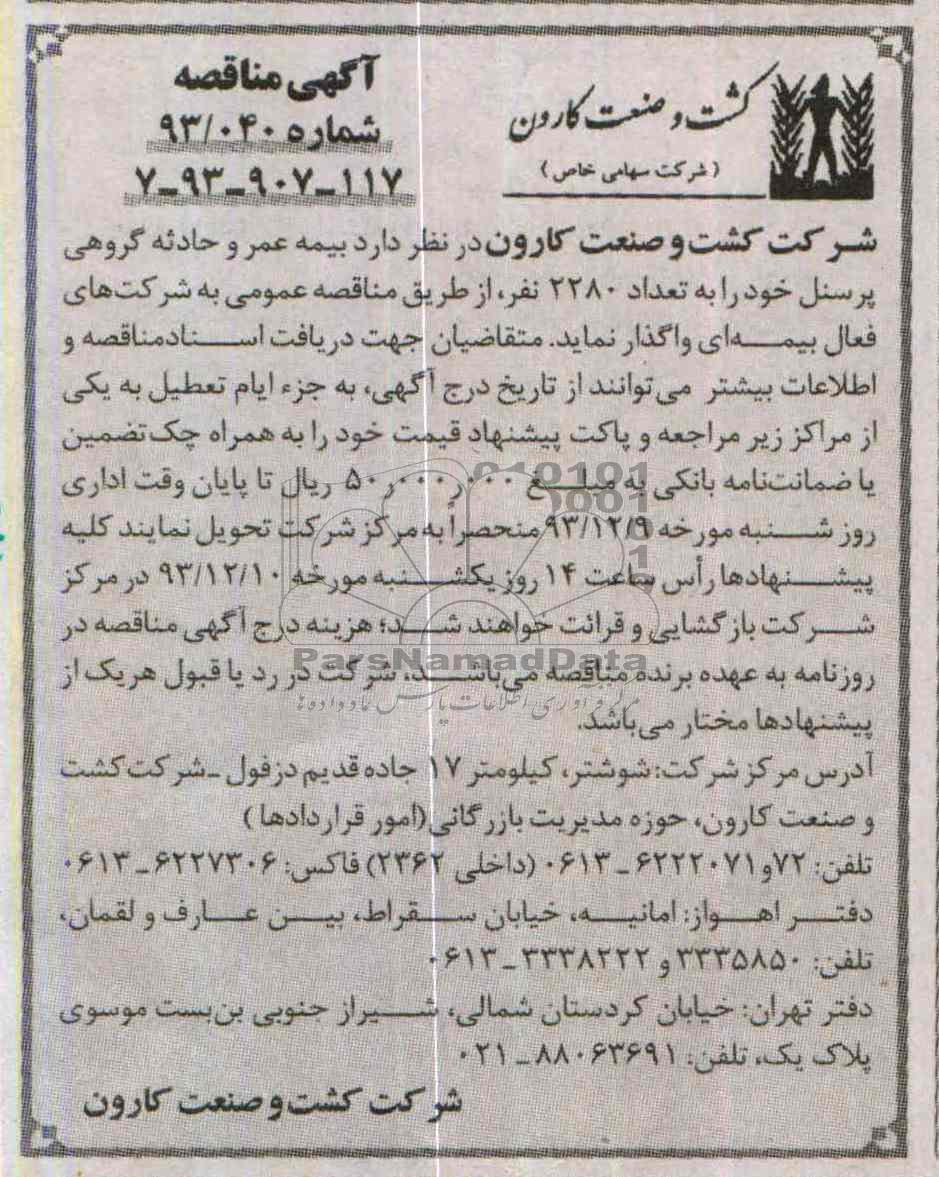 کشت و صنعت کارون
(شرکت سهامی خاص)
آگهی مناقصه
شماره ۹۳/۰۴۰
۷-۹۳-۹۰۷-۱۱۷
شرکت کشت و صنعت کارون در نظر دارد بیمه عمر و حادثه گروهی
پرسنل خود را به تعداد ۲۲۸۰ نفر، از طریق مناقصه عمومی به شرکت‌های
فعال بیمه‌ای واگذار نماید. متقاضیان جهت دریافت اسناد مناقصه و
اطلاعات بیشتر می‌توانند از تاریخ درج آگهی، به جزء ایام تعطیل به یکی
از مراکز زیر مراجعه و پاکت پیشنهاد قیمت خود را به همراه چک تضمین
یا ضمانت‌نامه بانکی به مبلغ ۵۰٫۰۰۰٫۰۰۰ ریال تا پایان وقت اداری
روز شنبه مورخه ۹۳/۱۲/۹ منحصراً به مرکز شرکت تحویل نمایند کلیه
پیشنهادها رأس ساعت ۱۴ روز یکشنبه مورخه ۹۳/۱۲/۱۰ در مرکز
شرکت بازگشایی و قرائت خواهند شد؛ هزینه درج آگهی مناقصه در
روزنامه به عهده برنده مناقصه می‌باشد، شرکت در رد یا قبول هر یک از
پیشنهادها مختار می‌باشد.
آدرس مرکز شرکت: شوشتر، کیلومتر ۱۷ جاده قدیم دزفول - شرکت کشت
و صنعت کارون، حوزه مدیریت بازرگانی (امور قراردادها)
تلفن: ۷۲ و ۶۲۲۲۰۷۱ - ۰۶۱۳ (داخلی ۲۳۶۲) فاکس: ۶۲۲۷۳۰۶ - ۰۶۱۳
دفتر اهواز: امانیه، خیابان سقراط، بین عارف و لقمان،
تلفن: ۳۳۳۵۸۵۰ و ۳۳۳۸۲۲۲ - ۰۶۱۳
دفتر تهران: خیابان کردستان شمالی، شیراز جنوبی بن‌بست موسوی
پلاک یک، تلفن: ۸۸۰۶۳۶۹۱ - ۰۲۱
شرکت کشت و صنعت کارون
ParsNamadData